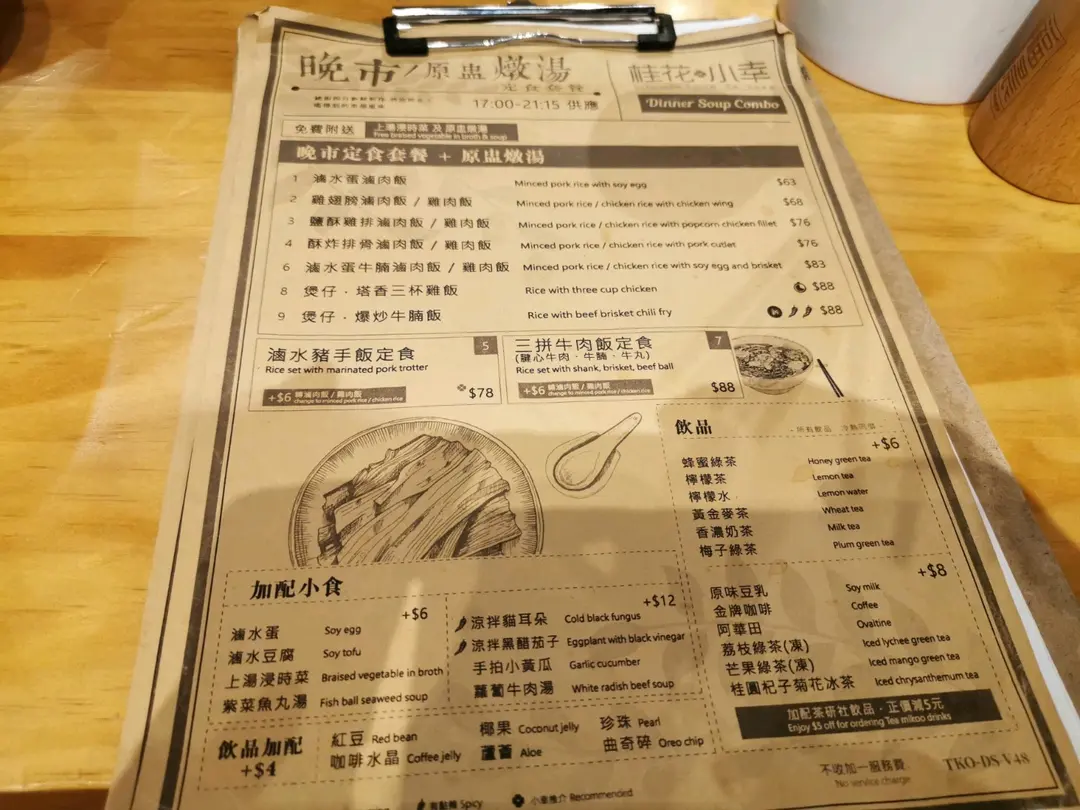 晚市/原盅燉湯
定食套餐
17:00-21:15 供應
桂花小幸
Dinner Soup Combo
免費附送 上湯浸時菜 及 原盅燉湯
Free braised vegetable in broth & soup
晚市定食套餐 + 原盅燉湯
1 滷水蛋滷肉飯 Minced pork rice with soy egg $63
2 雞翅膀滷肉飯 / 雞肉飯 Minced pork rice / chicken rice with chicken wing $68
3 鹽酥雞排滷肉飯 / 雞肉飯 Minced pork rice / chicken rice with popcorn chicken fillet $76
4 酥炸排骨滷肉飯 / 雞肉飯 Minced pork rice / chicken rice with pork cutlet $76
6 滷水蛋牛腩滷肉飯 / 雞肉飯 Minced pork rice / chicken rice with soy egg and brisket $83
8 煲仔 · 塔香三杯雞飯 Rice with three cup chicken $88
9 煲仔 · 爆炒牛腩飯 Rice with beef brisket chili fry $88
滷水豬手飯定食 5
Rice set with marinated pork trotter
+$6 轉滷肉飯 / 雞肉飯
change to minced pork rice / chicken rice
$78
三拼牛肉飯定食 7
(腱心牛肉 · 牛腩 · 牛丸)
Rice set with shank, brisket, beef ball
+$6 轉滷肉飯 / 雞肉飯
change to minced pork rice / chicken rice
$88
飲品
+$6
蜂蜜綠茶 Honey green tea
檸檬茶 Lemon tea
檸檬水 Lemon water
黃金麥茶 Wheat tea
香濃奶茶 Milk tea
梅子綠茶 Plum green tea
+$8
原味豆乳 Soy milk
金牌咖啡 Coffee
阿華田 Ovaltine
荔枝綠茶(凍) Iced lychee green tea
芒果綠茶(凍) Iced mango green tea
桂圓杞子菊花冰茶 Iced chrysanthemum tea
加配茶研社飲品 · 正價減5元
Enjoy $5 off for ordering Tea mikoo drinks
加配小食
+$6
滷水蛋 Soy egg
滷水豆腐 Soy tofu
上湯浸時菜 Braised vegetable in broth
紫菜魚丸湯 Fish ball seaweed soup
+$12
涼拌貓耳朵 Cold black fungus
涼拌黑醋茄子 Eggplant with black vinegar
手拍小黃瓜 Garlic cucumber
蘿蔔牛肉湯 White radish beef soup
飲品加配
+$4
紅豆 Red bean
椰果 Coconut jelly
珍珠 Pearl
咖啡水晶 Coffee jelly
蘆薈 Aloe
曲奇碎 Oreo chip
不收加一服務費
No service charge
TKO-DS-V48
有點辣 Spicy
小幸推介 Recommended